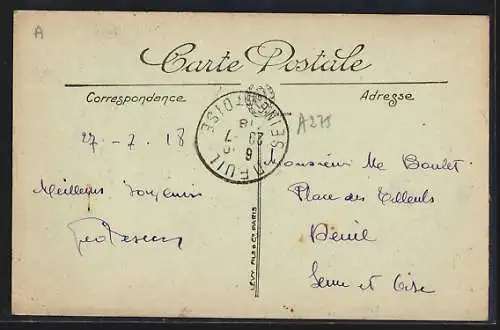 A
Carte Postale
Correspondance
Adresse
A275
27 - 7. 18
Meilleurs Souvenirs
Monsieur Me Boulet
Place des Tilleuls
Deuil
Seine et Oise
DEUIL
SEINE ET OISE
29 -7
18
LÉVY FILS & Cie PARIS